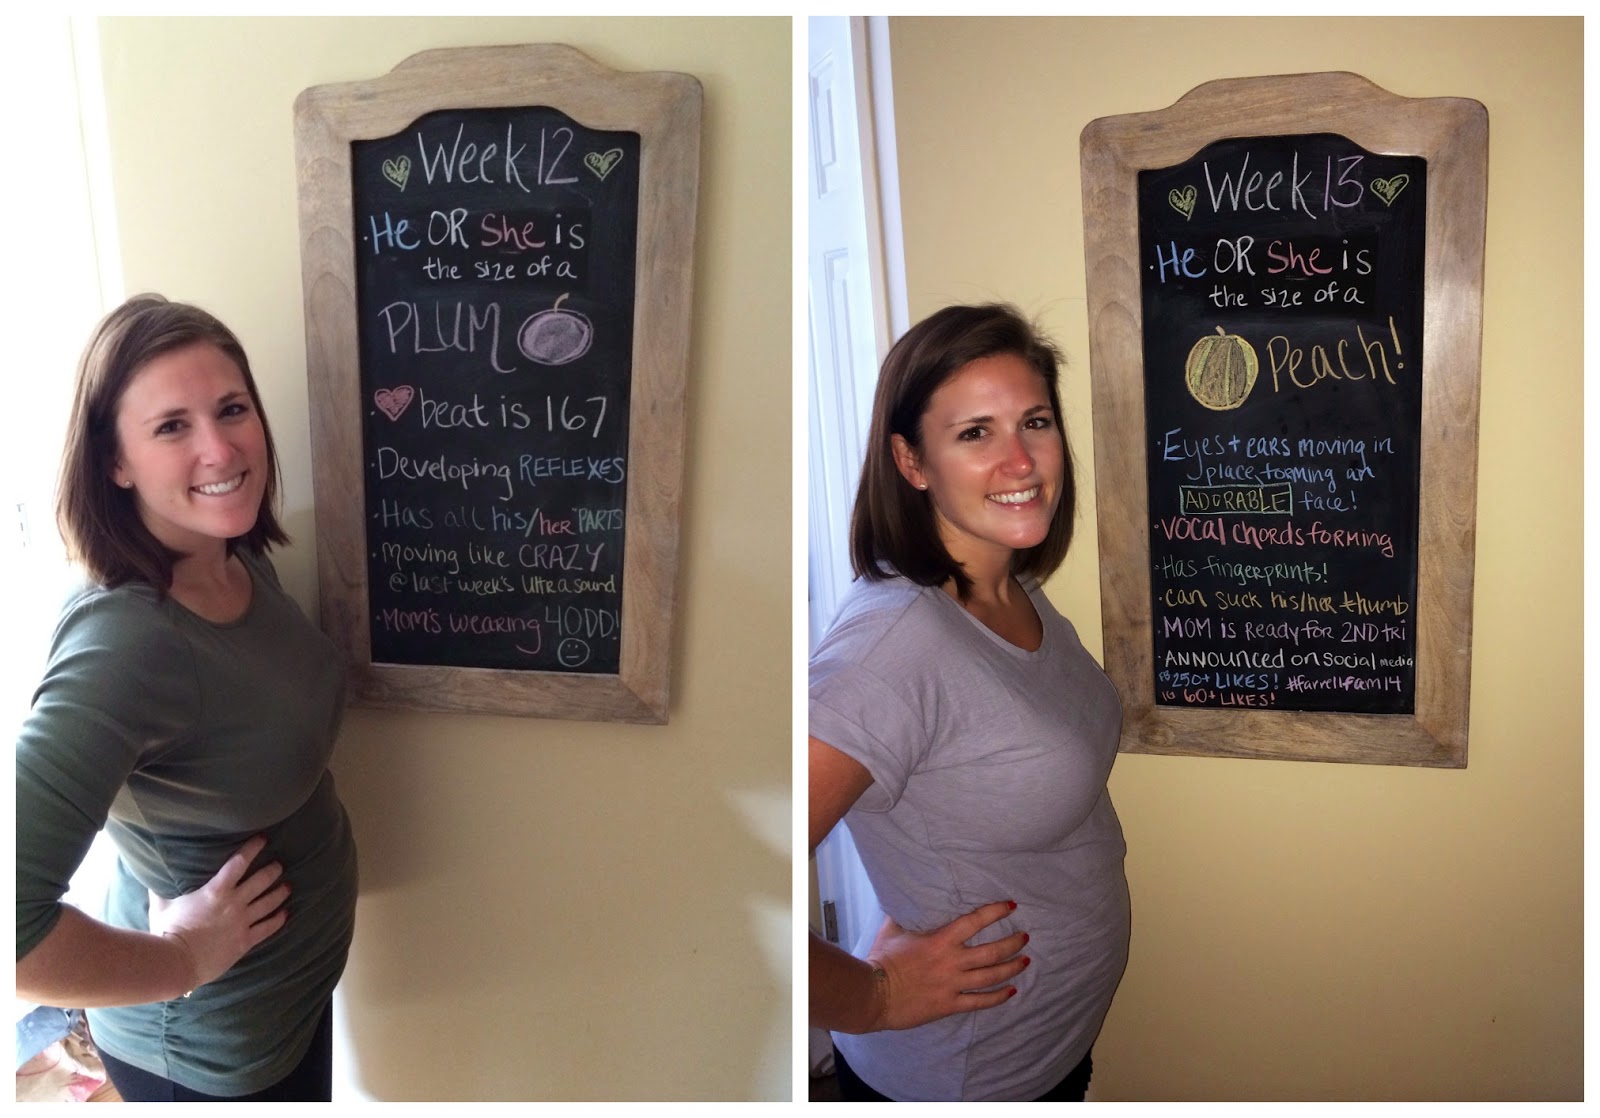 Week 12
He OR She is
the size of a
PLUM
beat is 167
Developing REFLEXES
Has all his/her "PARTS
moving like CRAZY
@ last week's Ultrasound
Mom's wearing 40DD!
Week 13
He OR She is
the size of a
Peach!
Eyes + ears moving in
place, forming an
ADORABLE face!
Vocal Chords forming
Has fingerprints!
can suck his/her thumb
MOM is Ready for 2ND tri
ANNOUNCED on social media
FB 250+ LIKES! #farrellfam14
IG 60+ LIKES!